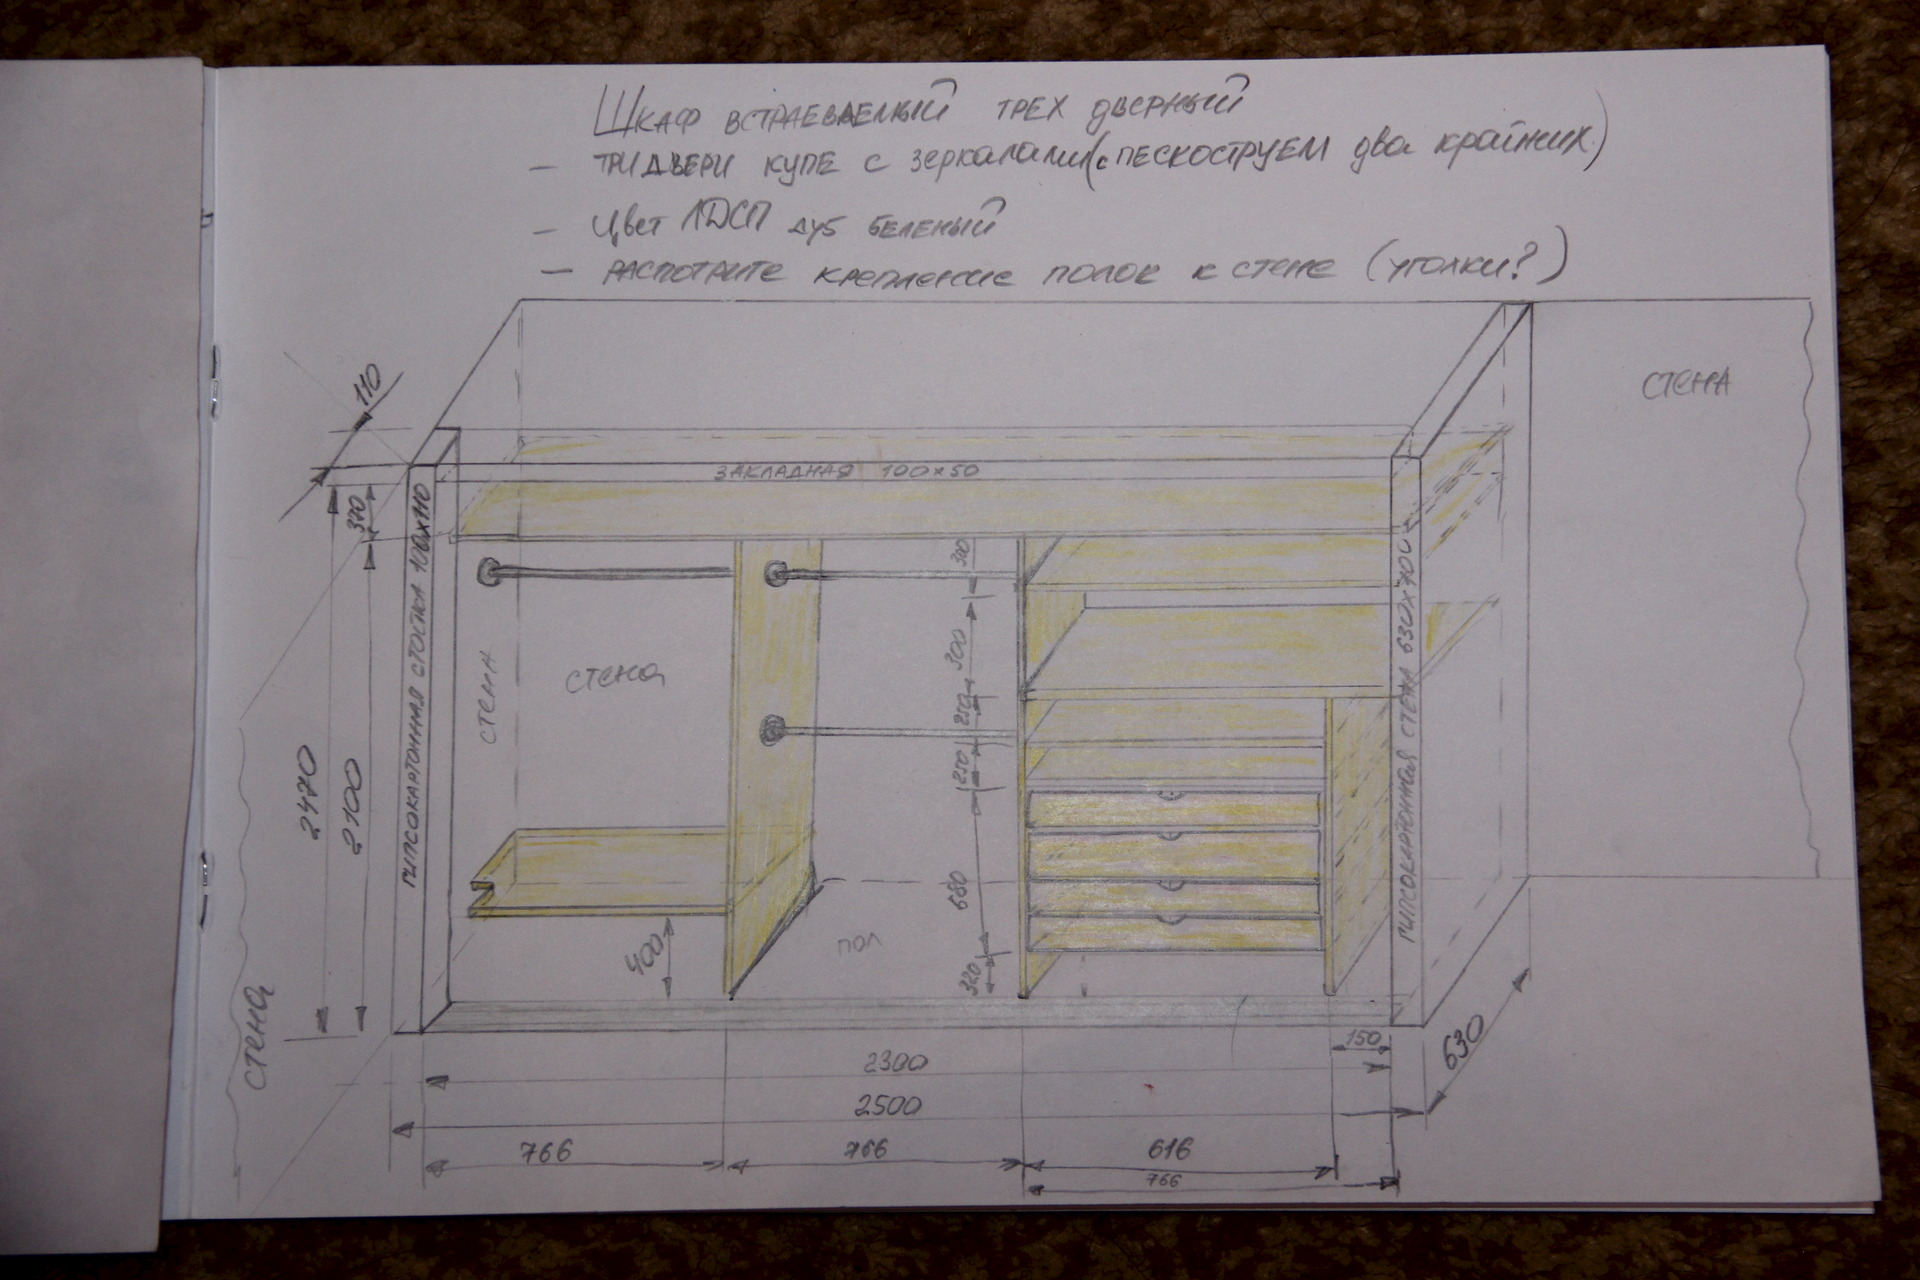 Шкаф встраеваемый трех дверный
– три двери купе с зеркалами (с пескоструем два крайних)
– Цвет ЛДСП дуб беленый
– распотрите крепление полок к стене (уголки?)
СТЕНА
110
ЗАКЛАДНАЯ 100×50
370
ГИПСОКАРТОННАЯ СТОЙКА 100×110
300
ГИПСОКАРТОННАЯ СТЕНА 630×100
СТЕНА
стена
300
250
250
2470
2100
680
400
пол
320
стена
150
630
2300
2500
766
766
616
766